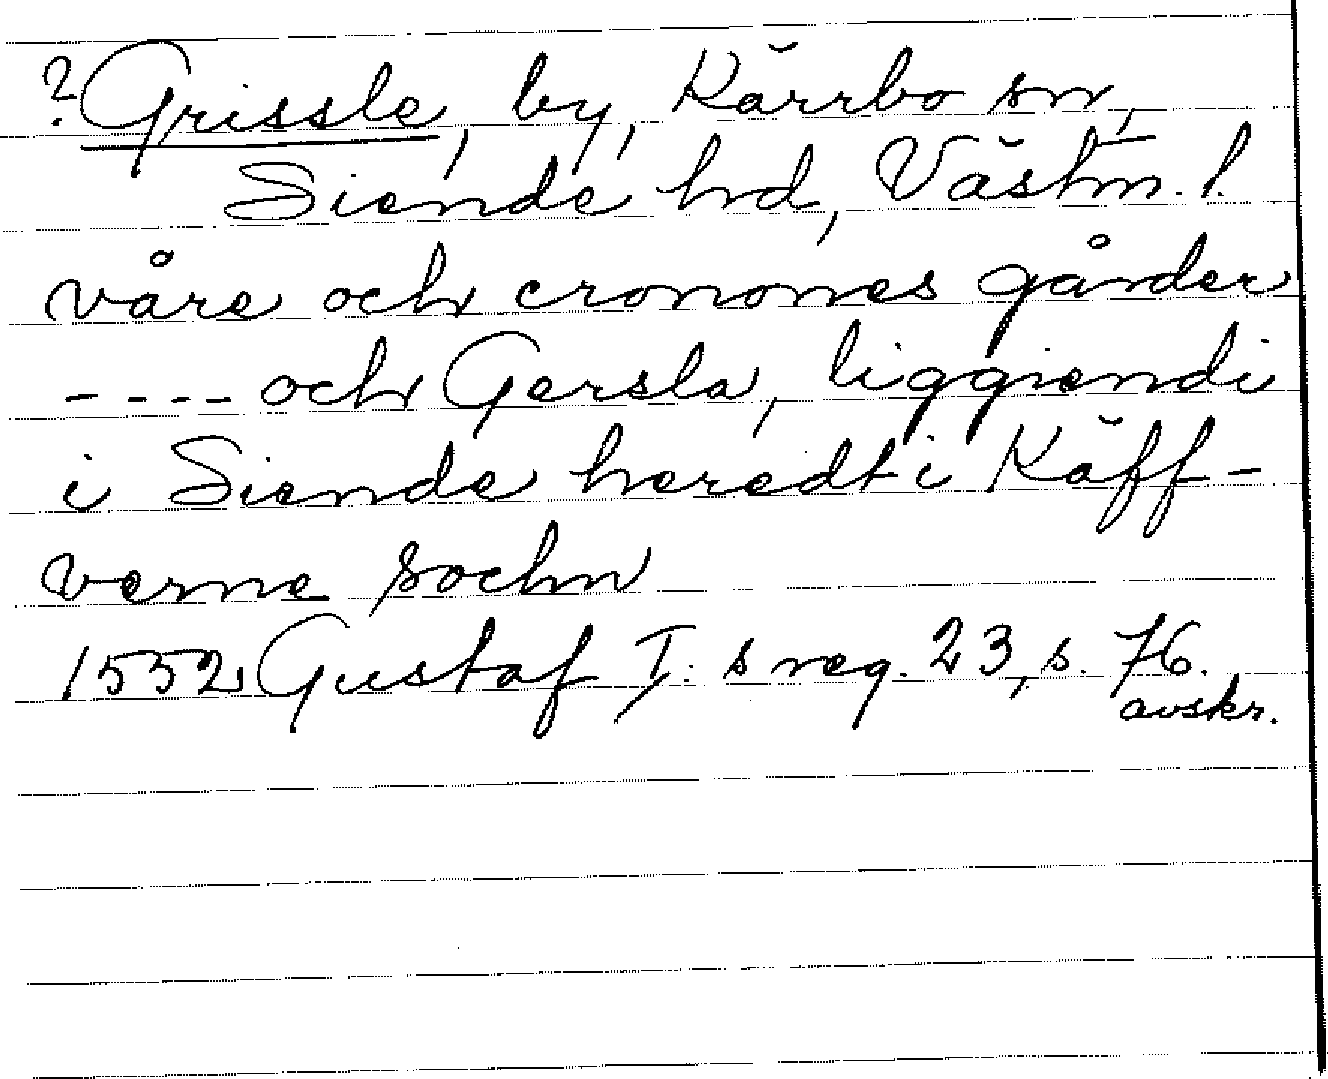 ? Grissle, by, Kärrbo sn,
Siende hd, Västm. l.
våre och crononnes gårder
---- och Gersla, liggiendi
i Siende heredt i Käff-
verne sochn
1552 Gustaf I:s reg. 23, s. 76.
avskr.